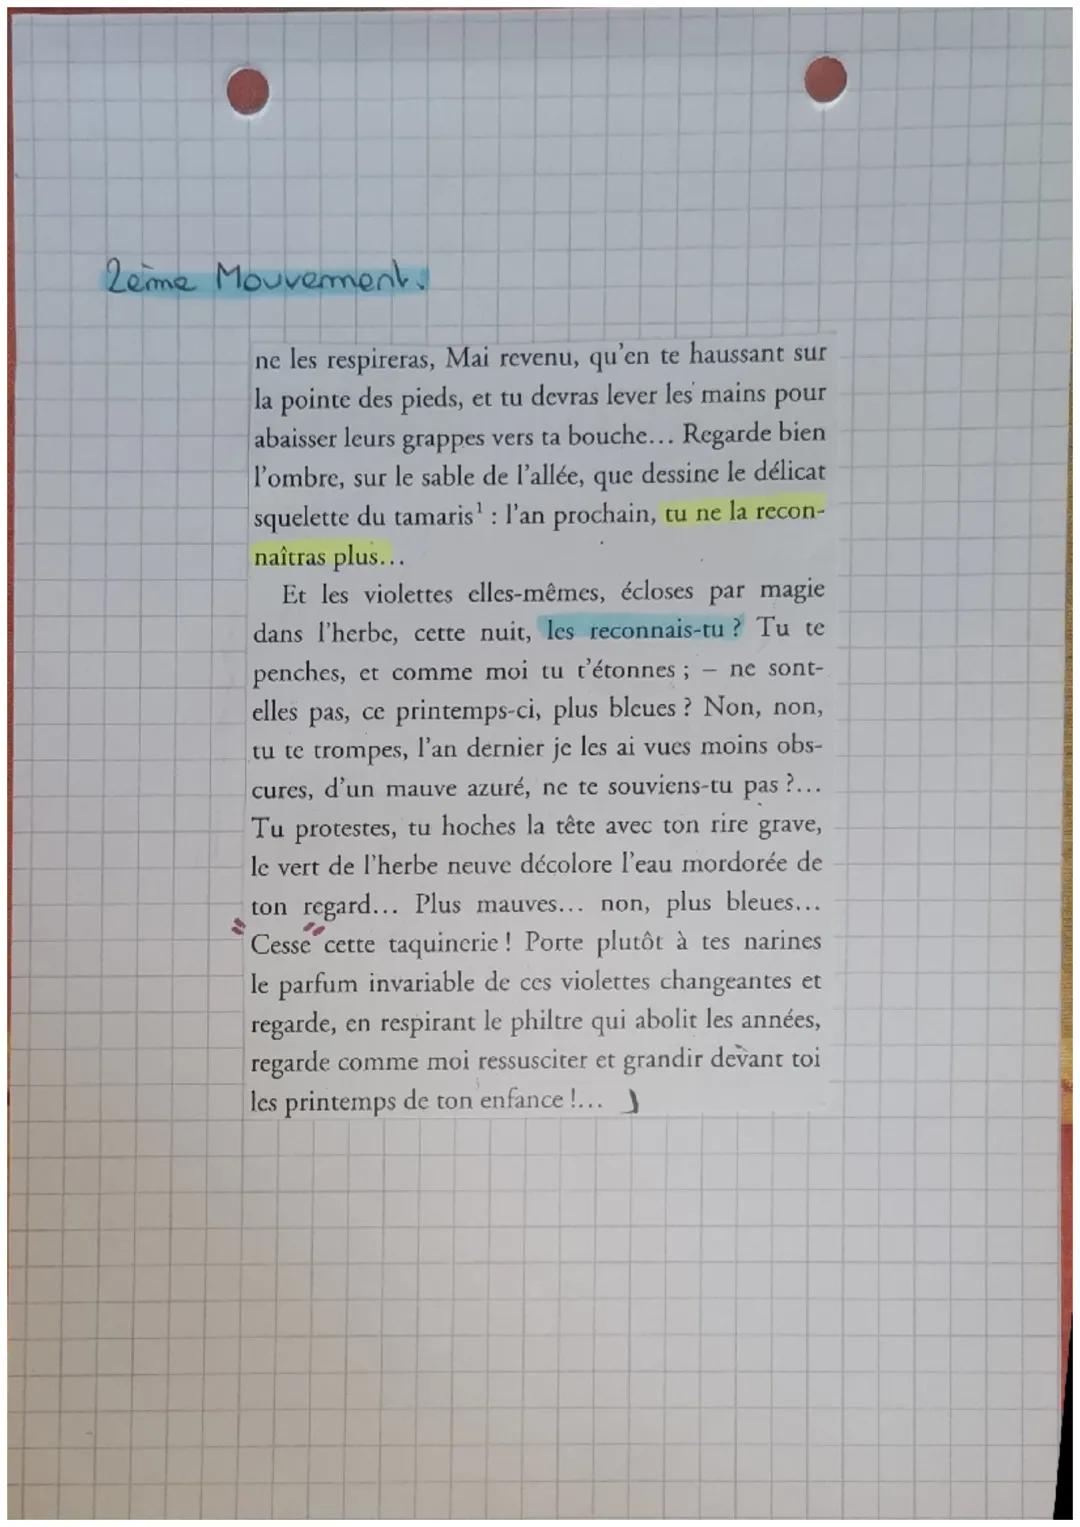 2ème Mouvement.
ne les respireras, Mai revenu, qu'en te haussant sur
la pointe des pieds, et tu devras lever les mains pour
abaisser leurs grappes vers ta bouche... Regarde bien
l'ombre, sur le sable de l'allée, que dessine le délicat
squelette du tamaris¹ : l'an prochain, tu ne la recon-
naîtras plus...
Et les violettes elles-mêmes, écloses par magie
dans l'herbe, cette nuit, les reconnais-tu ? Tu te
penches, et comme moi tu t'étonnes ; – ne sont-
elles pas, ce printemps-ci, plus bleues ? Non, non,
tu te trompes, l'an dernier je les ai vues moins obs-
cures, d'un mauve azuré, ne te souviens-tu pas ?...
Tu protestes, tu hoches la tête avec ton rire grave,
le vert de l'herbe neuve décolore l'eau mordorée de
ton regard... Plus mauves... non, plus bleues...
"Cesse" cette taquinerie ! Porte plutôt à tes narines
le parfum invariable de ces violettes changeantes et
regarde, en respirant le philtre qui abolit les années,
regarde comme moi ressusciter et grandir devant toi
les printemps de ton enfance !... )